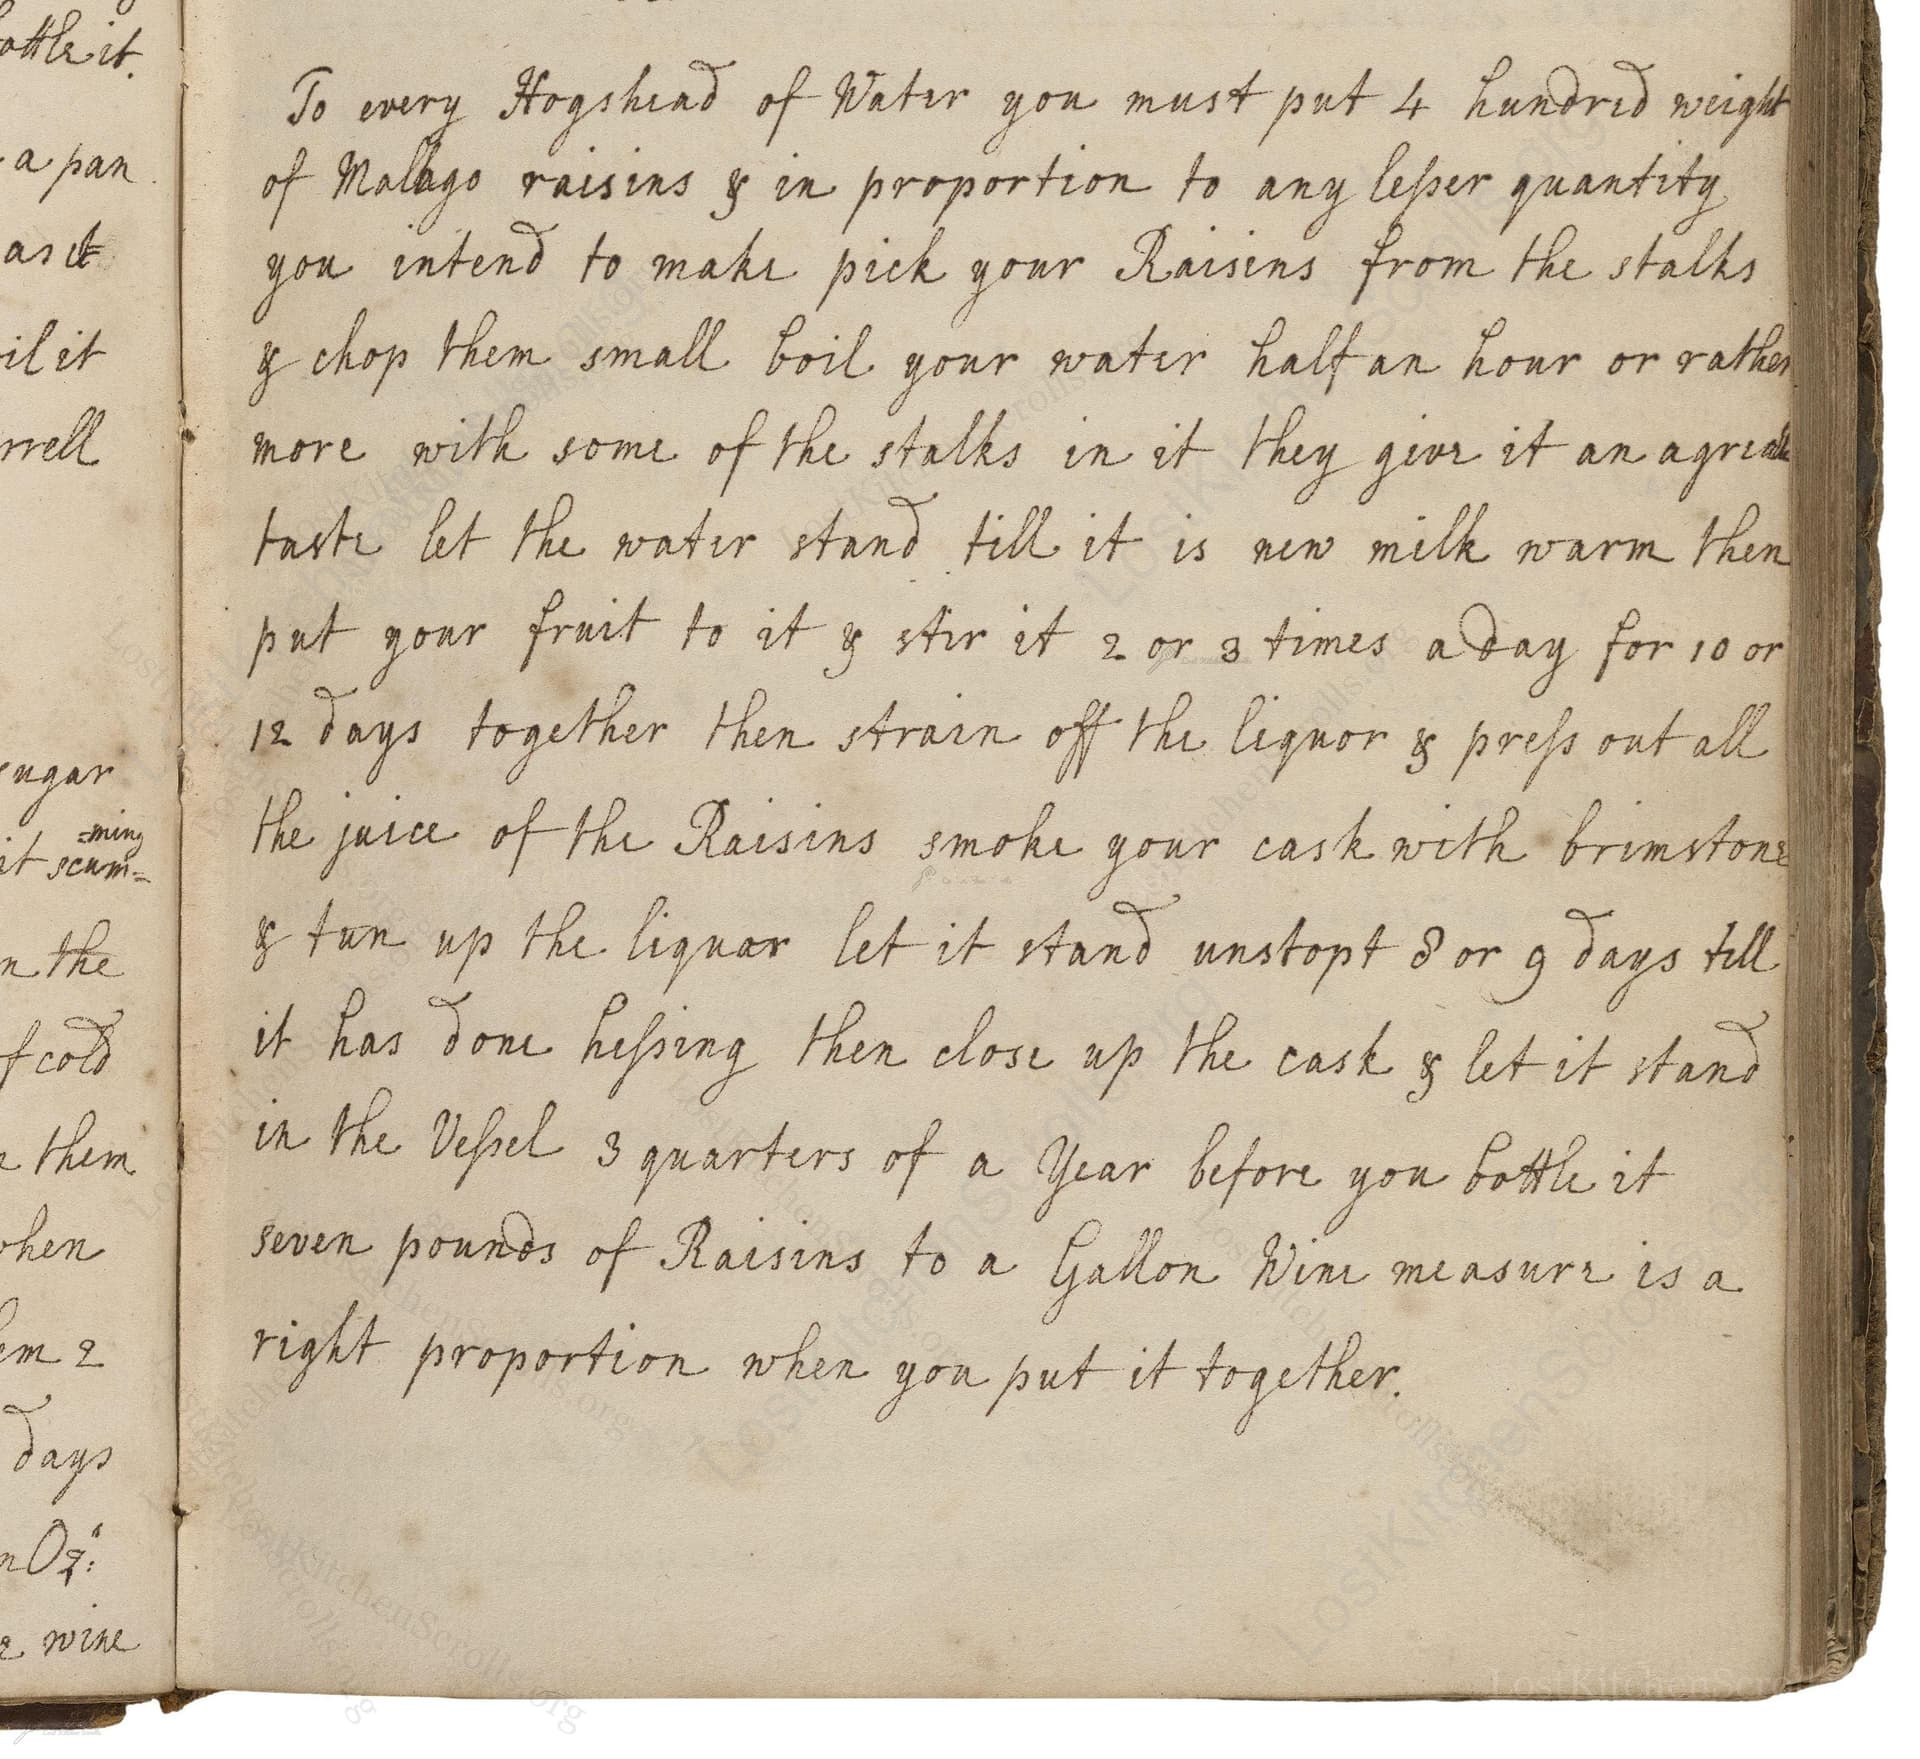 ottle it.
a pan
as it
il it
rrell
sugar
=ming
it scum=
n the
f cold
them
when
em 2
days
wine
To every Hogshead of Water you must put 4 hundred weight
of Mallago raisins & in proportion to any leſser quantity
you intend to make pick your Raisins from the stalks
& chop them small boil your water half an hour or rather
more with some of the stalks in it they give it an agreable
taste let the water stand till it is new milk warm then
put your fruit to it & stir it 2 or 3 times a day for 10 or
12 days together then strain off the liquor & preſs out all
the juice of the Raisins smoke your cask with brimstone
& tun up the liquor let it stand unstopt 8 or 9 days till
it has done heſsing then close up the cask & let it stand
in the Veſsel 3 quarters of a Year before you bottle it
seven pounds of Raisins to a Gallon Wine measure is a
right proportion when you put it together.
LostKitchenScrolls.org